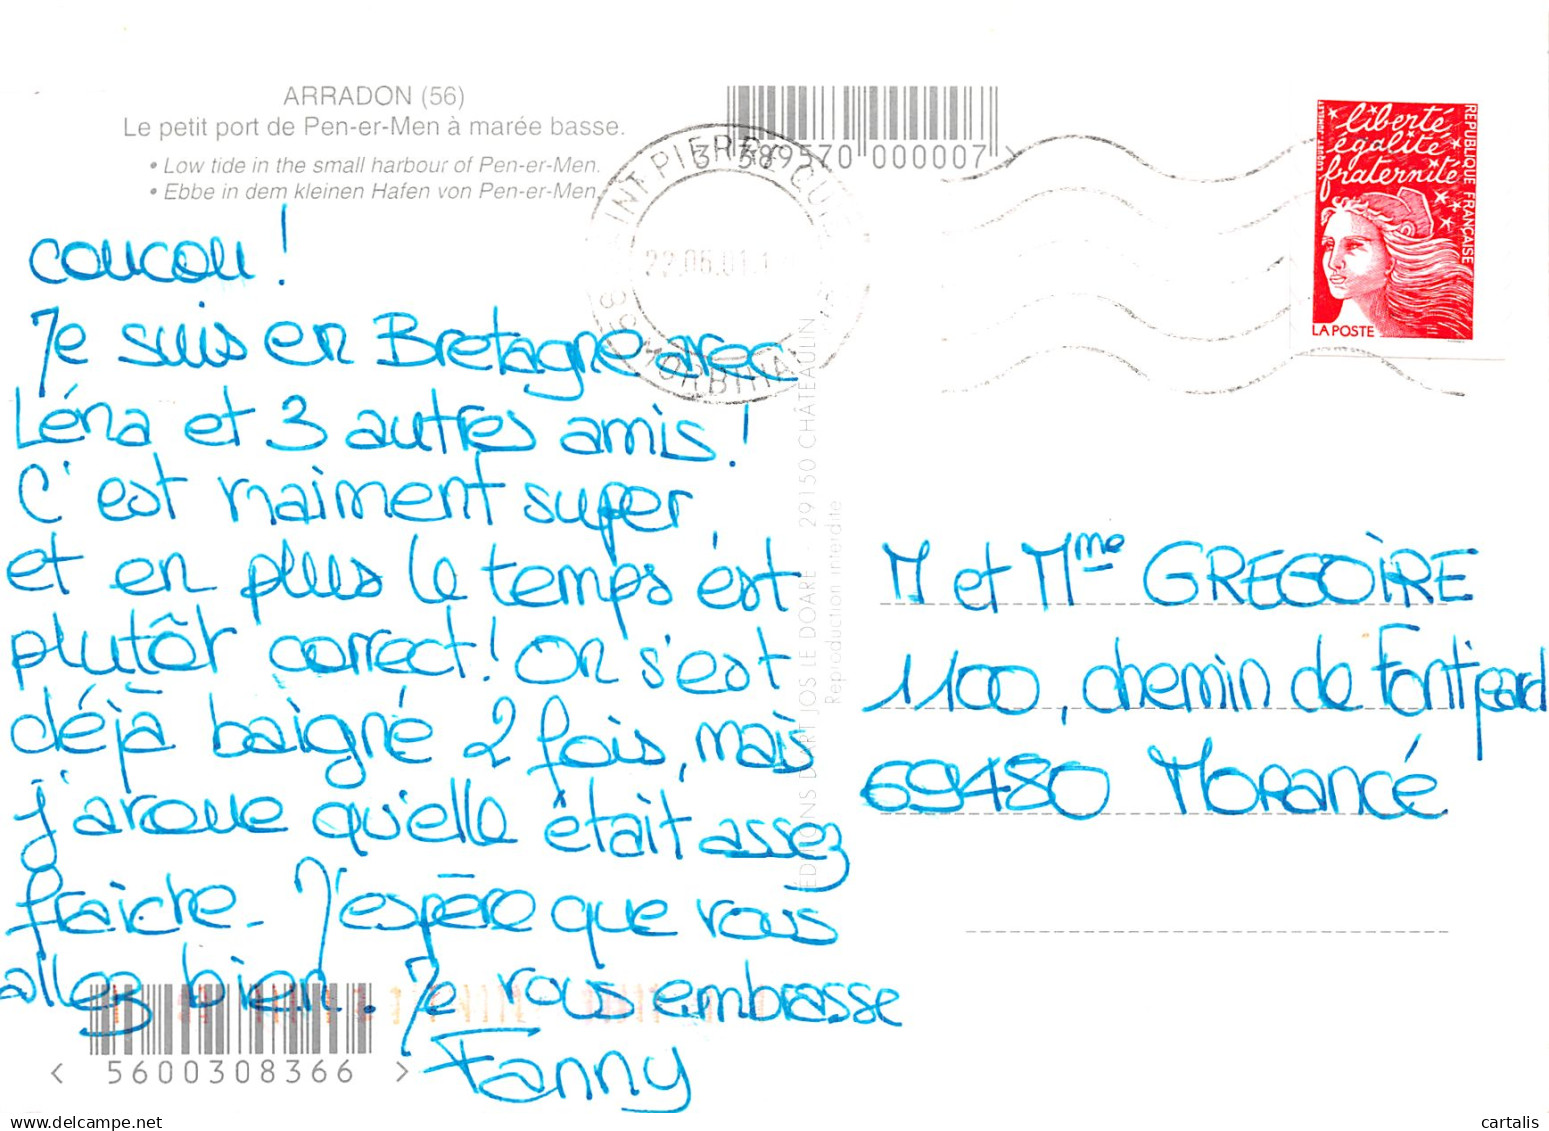 ARRADON (56)
Le petit port de Pen-er-Men à marée basse.
• Low tide in the small harbour of Pen-er-Men.
• Ebbe in dem kleinen Hafen von Pen-er-Men.
3 389570 000007
INT PIERRE QUI
22.06.01
MORBIHAN
liberté
égalité
fraternité
REPUBLIQUE FRANÇAISE
LA POSTE
coucou !
Je suis en Bretagne avec
Léna et 3 autres amis !
C'est vraiment super
et en plus le temps est
plutôt correct ! On s'est
déjà baigné 2 fois, mais
j'avoue qu'elle était assez
fraîche. J'espère que vous
allez bien. Je vous embrasse
Fanny
EDITIONS D'ART JOS LE DOARE - 29150 CHATEAULIN
Reproduction interdite
M et Mme GREGOIRE
1100, chemin de Fontipard
69480 MORANCé
< 5600308366 >
cartalis